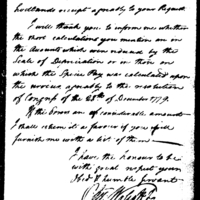 hollands receipt agreeably to your Request
I will thank you to inform me whether
the three calculations you mention are on
the Accounts which were reduced by the
Scale of Depreciation or on those on
which the Specie Pay was calculated upon
the agreeably to the resolution
of Congress of the 28th of December 1779.
If the former are of considerable amounts
I shall esteem it a favor if you will
furnish me with a list of them —
I have the honour to be
with great respect your
Obed & humble servant